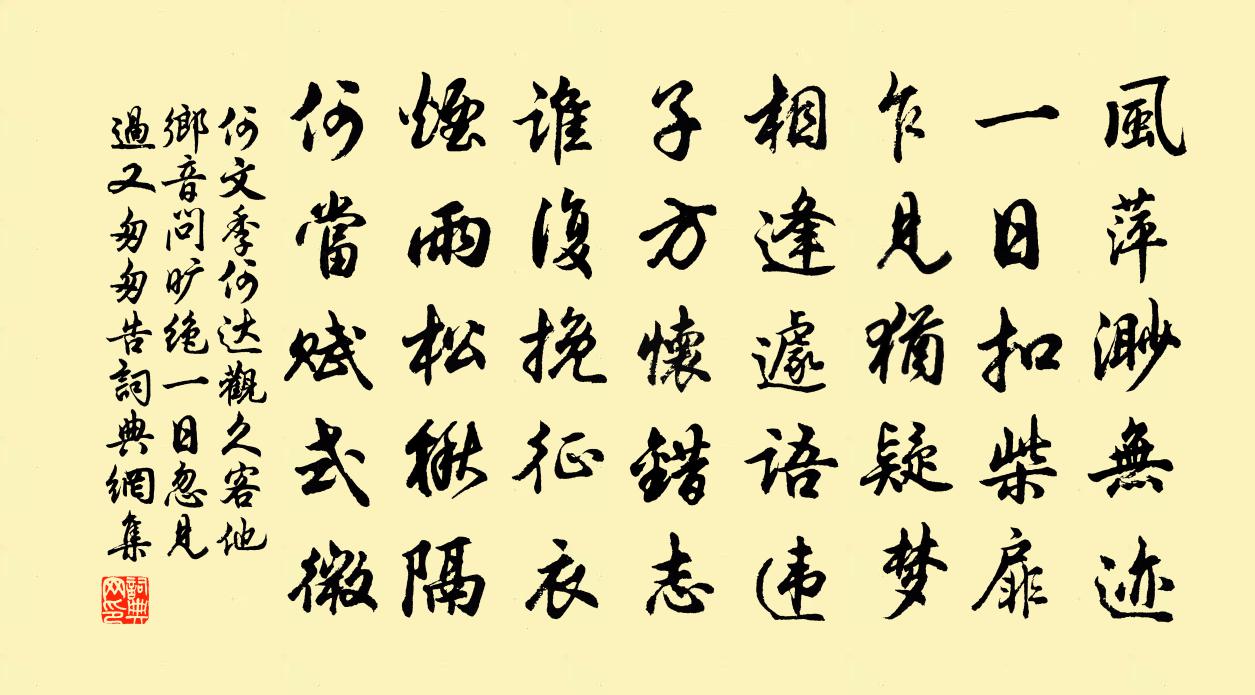 風萍渺無迹
一日扣柴扉
乍見猶疑梦
相逢遽語违
子方懷錯志
誰復挽征衣
煙雨松楸隔
何當賦式微
何文季何达觀久客他
鄉音問旷絶一日忽見
過又匆匆告詞典網集
詞典网印